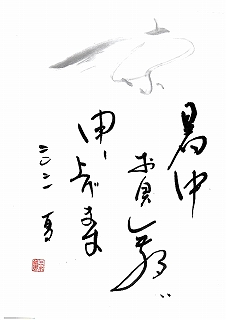 暑中
お見舞い
申し上げます
二〇二一 夏